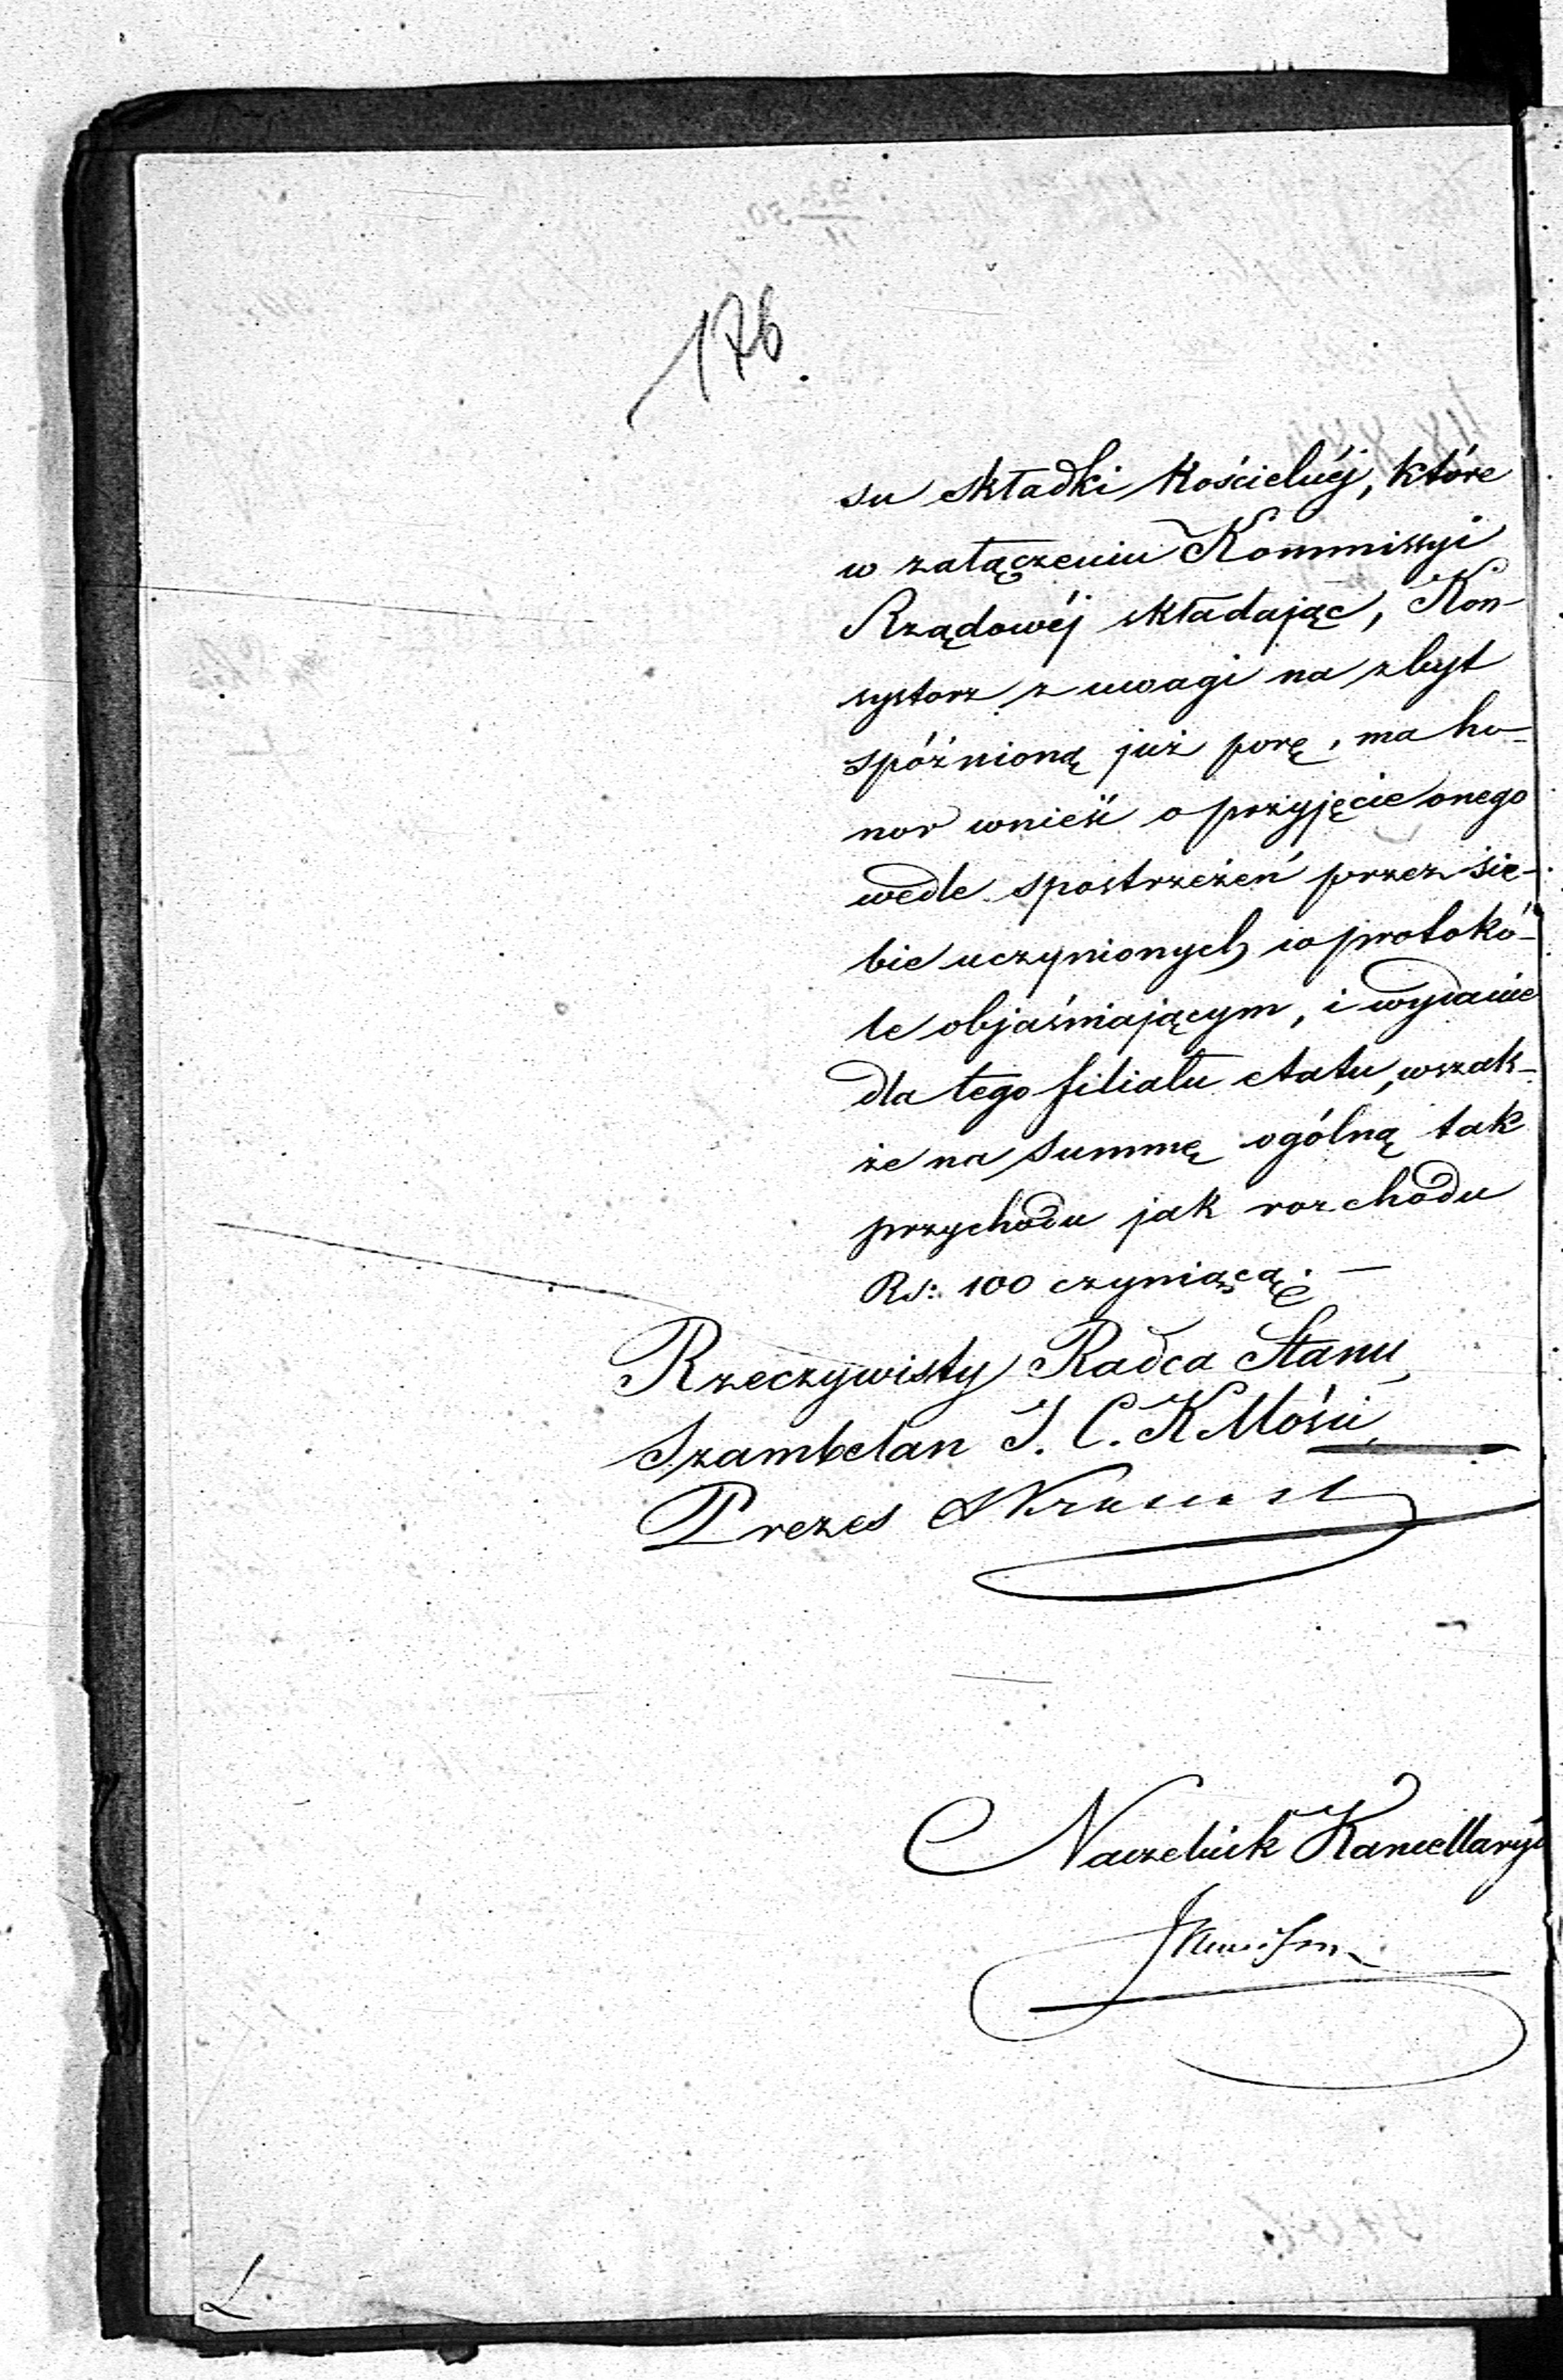 176.
su składki kościelnéj, które
w załączeniu Kommissyi
Rządowéj składając, Kon-
systorz z uwagi na zbyt
spóźnioną już porę, ma ho-
nor wnieść o przyjęcie onego
wedle spostrzeżeń przez sie-
bie uczynionych w protokó-
le objaśniającym, i wydanie
dla tego filiału etatu, wszak-
że na summę ogólną tak
przychodu jak rozchodu
Rs: 100 czyniącą. —
Rzeczywisty Radca Stanu,
Szambelan J. C. K Mości,
Prezes
Naczelnik Kancellaryi